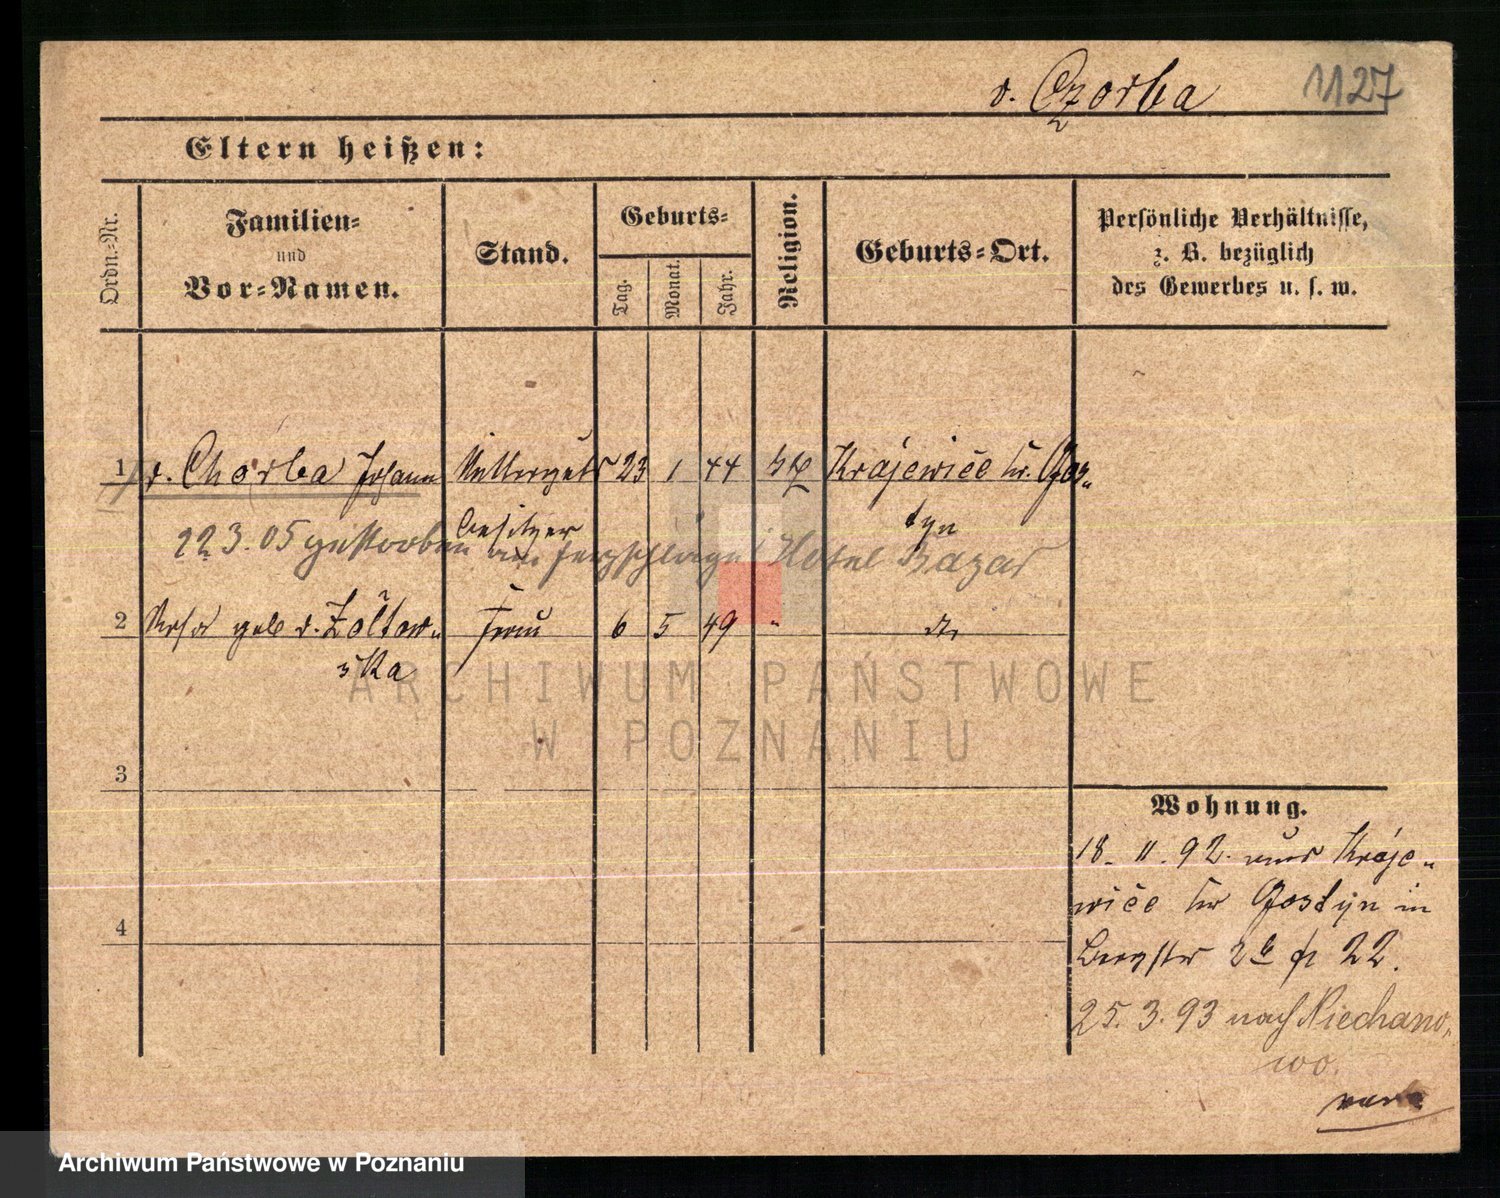 v. Czorba 1127
Eltern heißen:
Ordn.-Nr.
Familien-
und
Vor-Namen.
Stand.
Geburts-
Tag.
Monat.
Jahr.
Religion.
Geburts-Ort.
Persönliche Verhältnisse,
z. B. bezüglich
des Gewerbes u. s. w.
1 v. Chorba Johann Ritterguts 23 1 44 kth Krajewice Kr. Gos„
besitzer tyn
22 3. 05 gestorben am Herzschlage Hotel Bazar
2 geb v. Żółtow„ Frau 6 5 49 " do
ska
3
4
Wohnung.
18. 11. 92. aus Kraje„
wice Kr Gostyn in
Bergstr 2b p 22.
25. 3. 93 nach Niechano„
wo.
ARCHIWUM PAŃSTWOWE
W POZNANIU
Archiwum Państwowe w Poznaniu